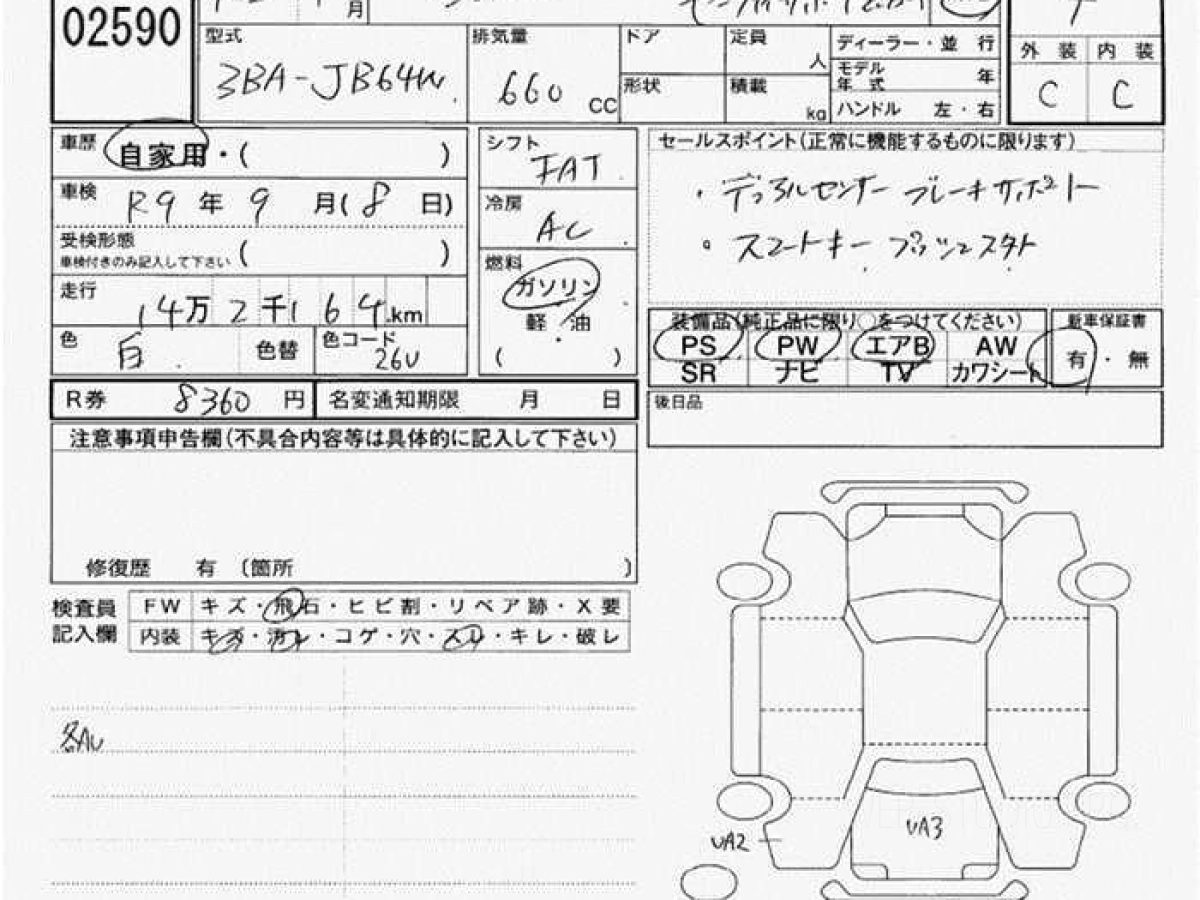 02590
月
型式
3BA-JB64W
排気量
660 CC
ドア
形状
定員
人
積載
kg
ディーラー・並 行
モデル年式 年
ハンドル 左・右
外 装 内 装
C C
車歴
自家用・( )
車検
R9年9月(8日)
受検形態
車検付きのみ記入して下さい ( )
走行
14万2千164km
色
白
色替
色コード
26U
シフト
FAT
冷房
AC
燃料
ガソリン
軽・油
( )
セールスポイント(正常に機能するものに限ります)
・デュアルセンサー ブレーキサポート
・スマートキー プッシュスタート
装備品(純正品に限り○をつけてください)
PS PW エアB AW
SR ナビ TV カワシート
新車保証書
有・無
R券 8360円
名変通知期限 月 日
後日品
注意事項申告欄(不具合内容等は具体的に記入して下さい)
修復歴 有 〔箇所 〕
検査員記入欄
FW キズ・飛石・ヒビ割・リペア跡・X要
内装 キズ・汚レ・コゲ・穴・スレ・キレ・破レ
各AU
UA3
UA2